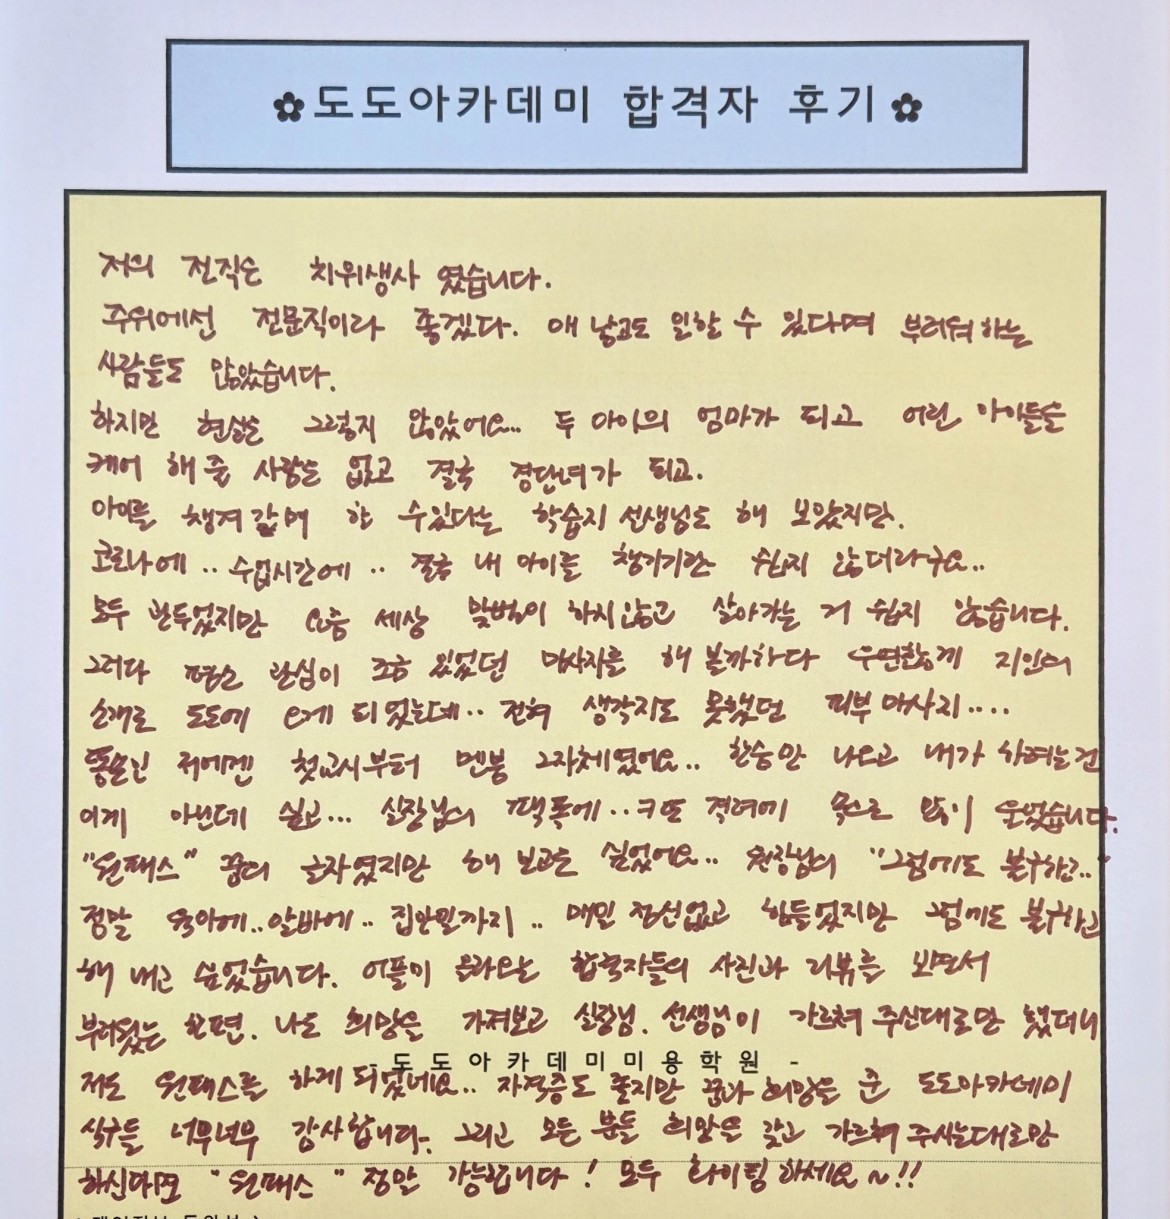 ✿도도아카데미 합격자 후기✿
저의 전직은 치위생사 였습니다.
주위에선 전문직이라 좋겠다. 애 낳고도 일할 수 있다며 부러워 하는
사람들도 많았습니다.
하지만 현실은 그렇지 않았어요... 두 아이의 엄마가 되고 어린 아이들을
케어 해 줄 사람도 없고 결국 경단녀가 되고.
아이를 챙겨 가며 할 수 있다는 학습지 선생님도 해 보았지만.
코로나에.. 수업시간에.. 결국 내 아이를 챙기기란 쉽지 않더라구요..
모두 반두었지만 요즘 세상 맞벌이 하지않고 살아가는 거 쉽지 않습니다.
그러다 평소 관심이 조금 있었던 마사지를 해 볼까하다 우연한 지인의
소개로 도도에 오게 되었는데.. 전혀 생각지도 못했던 피부 마사지....
저에겐 첫교시부터 멘붕 그자체였어요.. 한숨만 나오고 내가 하려는건
이게 아닌데 싶고... 실장님의 팩폭에.. 또 격려에 속으로 많이 울었습니다.
"원패스" 꿈의 글자였지만 해 보고는 싶었어요.. 원장님의 "그럼에도 불구하고.."
정말 육아에.. 알바에.. 집안일까지.. 매일 정신없고 힘들었지만 그럼에도 불구하고
해 내고 싶었습니다. 어플이 올라오는 합격자들의 사진과 리뷰를 보면서
부러웠는 한편. 나도 희망을 가져보고 실장님. 선생님이 가르쳐 주신대로만 했더니
- 도 도 아 카 데 미 미 용 학 원 -
저도 원패스를 하게 되었네요.. 자격증도 좋지만 꿈과 희망을 준 도도아카데미
식구들 너무너무 감사합니다. 그리고 모든 분들 희망을 갖고 가르쳐 주시는대로만
하신다면 "원패스" 정말 가능합니다! 모두 화이팅 하세요~!!